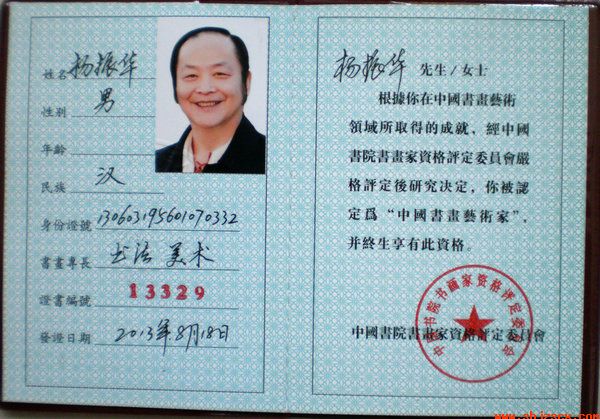 姓名 杨振华
性别 男
年齡
民族 汉
身份證號 130603195601070332
書畫專長 书法 美术
證書編號 13329
發證日期 2013年.8月18日
杨振华 先生/女士
根據你在中國書畫藝術
領域所取得的成就，經中國
書院書畫家資格評定委員會嚴
格評定後研究決定，你被認
定爲“中國書畫藝術家”，
并終生享有此資格。
中國書院書畫家資格評定委員會
中国书院书画家资格评定委员会